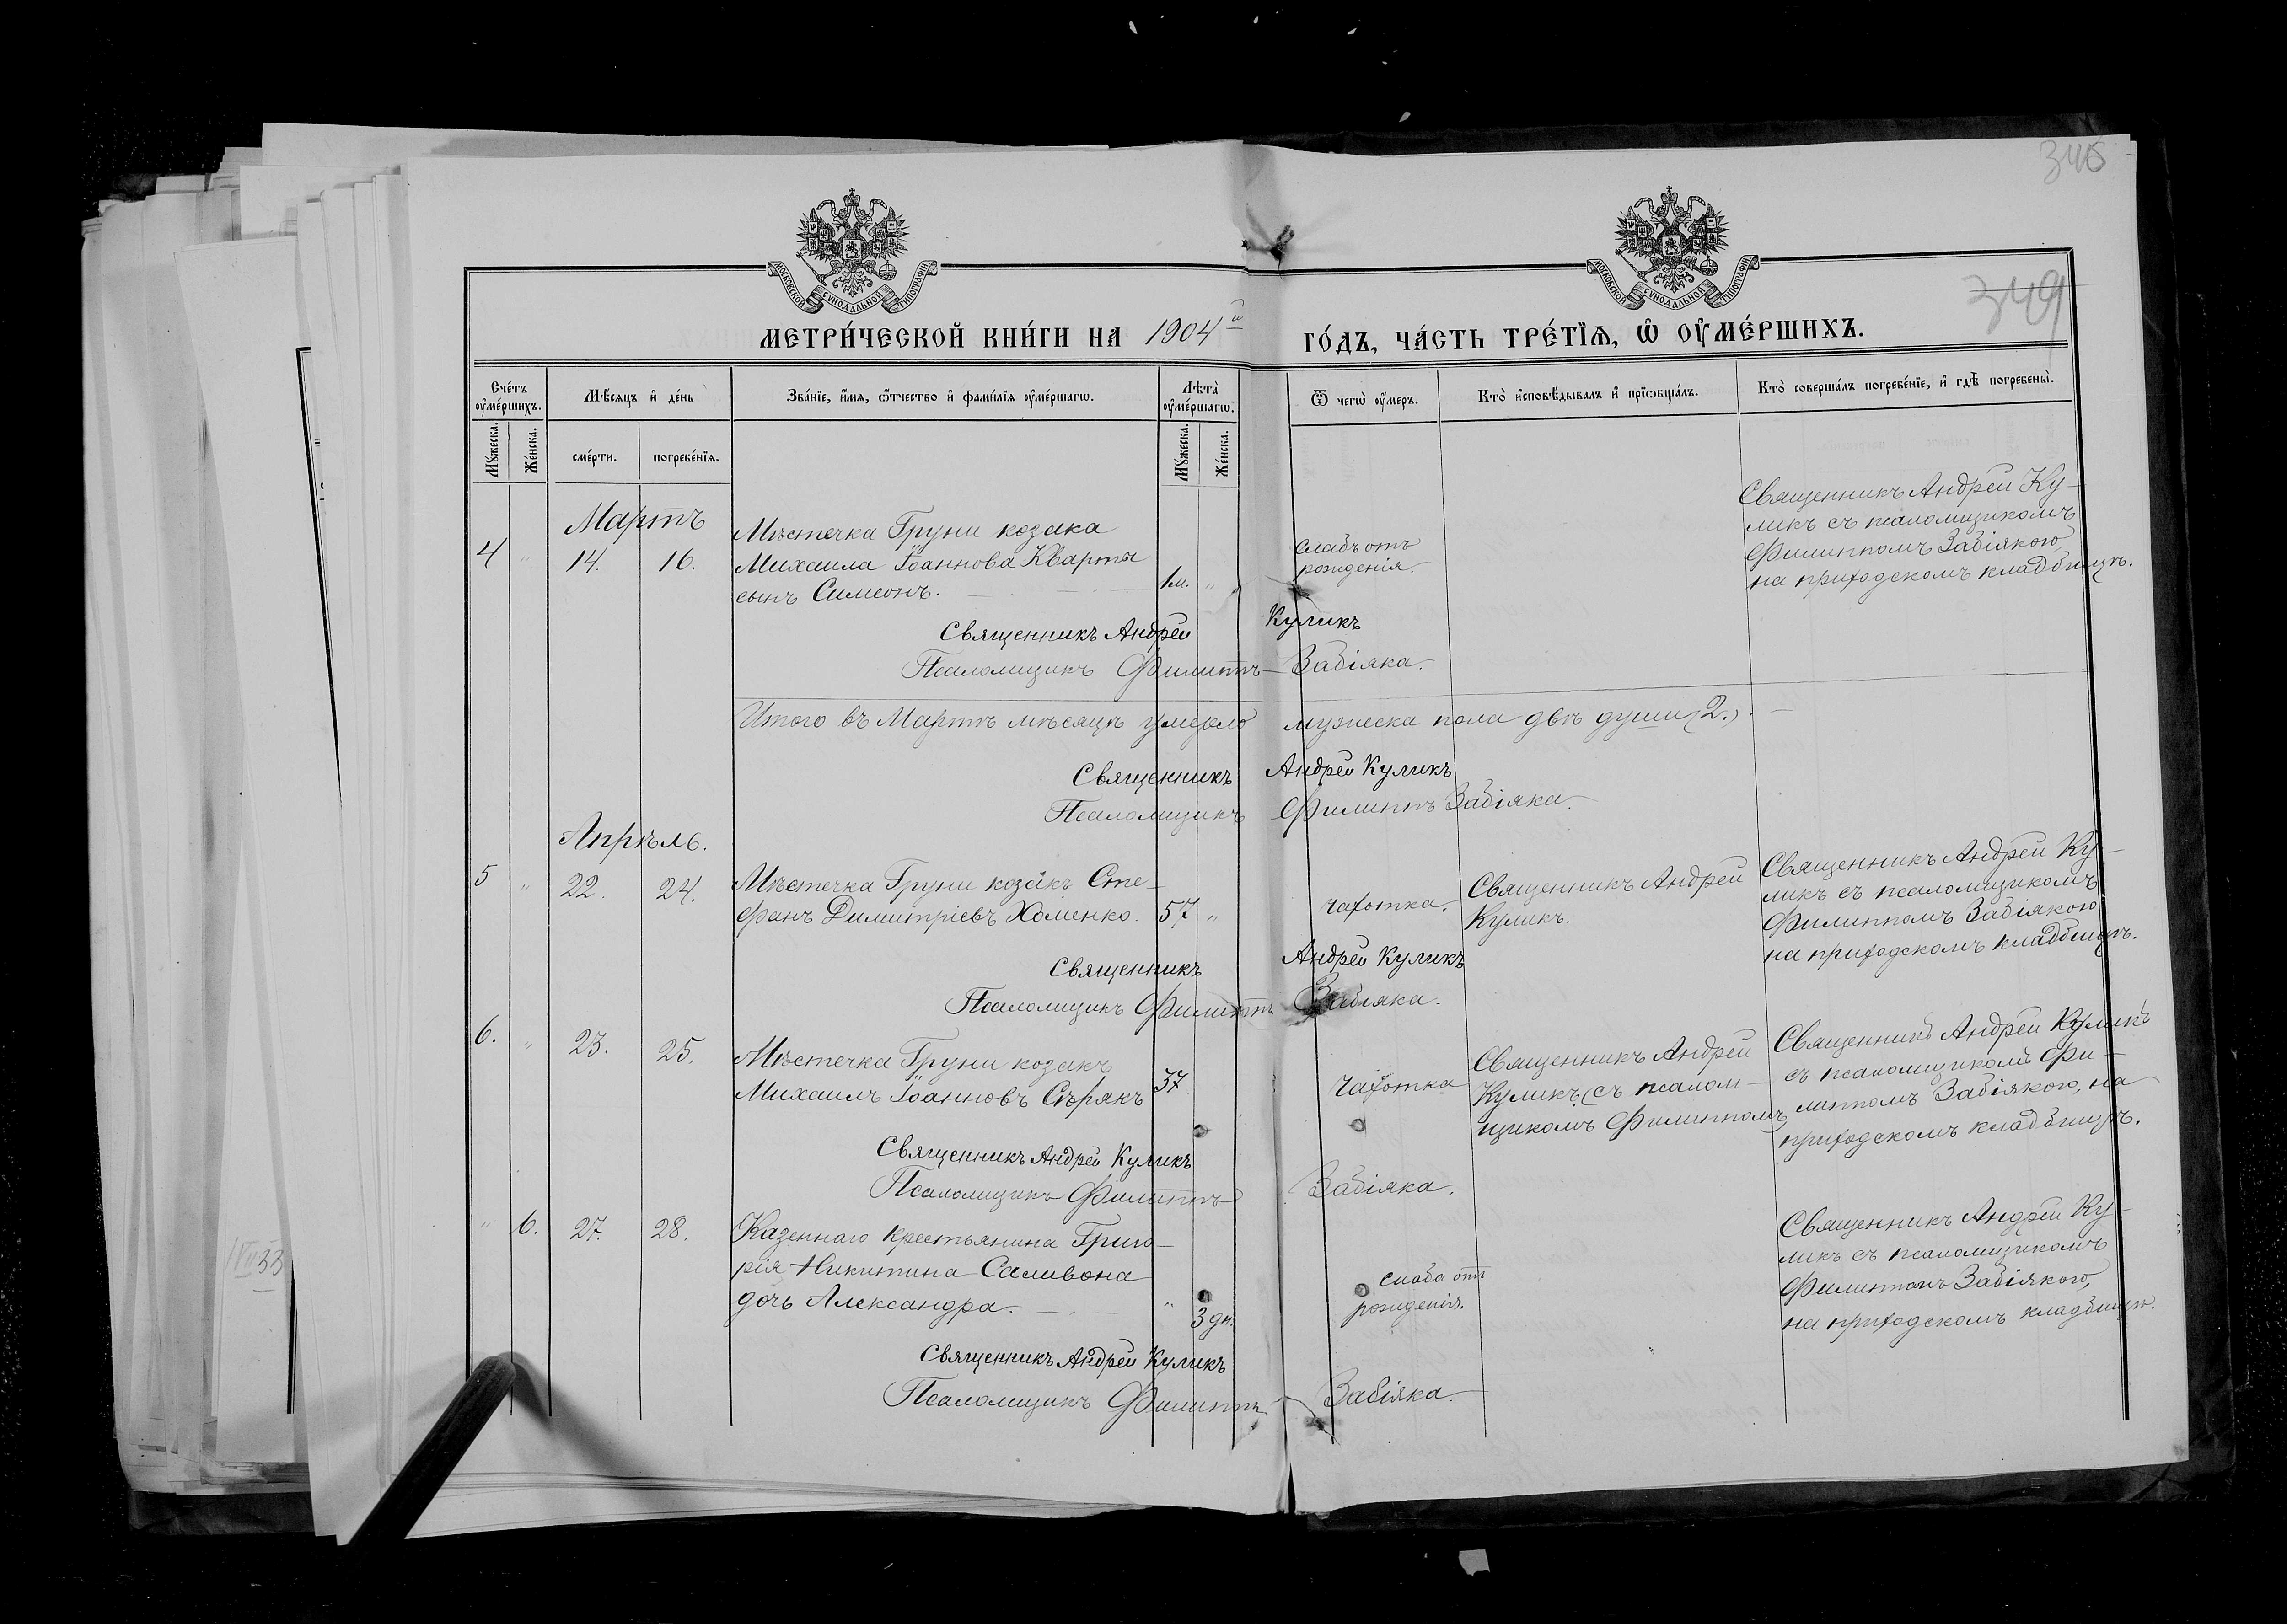 346
349
МОСКОВСКОЙ СѴНОДАЛЬНОЙ ТИПОГРАФІИ
МОСКОВСКОЙ СѴНОДАЛЬНОЙ ТИПОГРАФІИ
МЕТРИ́ЧЕСКОЙ КНИ́ГИ НА 1904й ГО́ДЪ, ЧА́СТЬ ТРЕ́ТЇѦ, Ѡ҆ ОУ҆МЕ́РШИХЪ.
Сче́тъ оу҆ме́ршихъ.
Мꙋ́жеска.
Же́нска.
Мѣ́сѧцъ и҆ де́нь
сме́рти.
погребе́нїѧ.
Зва́нїе, и҆́мѧ, ѻ҆́тчество и҆ фами́лїѧ оу҆ме́ршагѡ.
Лѣ́та оу҆ме́ршагѡ.
Мꙋ́жеска.
Же́нска.
Ѿ чегѡ̀ оу҆́меръ.
Кто̀ и҆сповѣ́дывалъ и҆ прїѡбща́лъ.
Кто̀ соверша́лъ погребе́нїе, и҆ гдѣ̀ погребены̀.
Мартъ
4 " 14. 16.
Мѣстечка Груни козака
Михаила Іоаннова Кварты
сынъ Симеонъ.
1 м. "
слабъ отъ
рожденія.
Священникъ Андрей Ку-
ликъ съ псаломщикомъ
Филиппомъ Забіякою
на приходскомъ кладбищѣ.
Священникъ Андрей Куликъ
Псаломщикъ Филиппъ Забіяка.
Итого въ Мартѣ мѣсяцѣ умерло мужеска пола двѣ души (2.).
Священникъ Андрей Куликъ
Псаломщикъ Филиппъ Забіяка.
Апрѣль.
5 " 22. 24.
Мѣстечка Груни козакъ Сте-
фанъ Димитріевъ Хоменко.
57 "
чахотка.
Священникъ Андрей
Куликъ.
Священникъ Андрей Ку-
ликъ съ псаломщикомъ
Филиппомъ Забіякою
на приходскомъ кладбищѣ.
Священникъ Андрей Куликъ
Псаломщикъ Филиппъ Забіяка.
6. " 23. 25.
Мѣстечка Груни козакъ
Михаилъ Іоанновъ Сѣрякъ
37
чахотка
Священникъ Андрей
Куликъ съ псалом-
щикомъ Филиппомъ
Священникъ Андрей Куликъ
съ псаломщикомъ Фи-
липпомъ Забіякою, на
приходскомъ кладбищѣ.
Священникъ Андрей Куликъ
Псаломщикъ Филиппъ Забіяка.
" 6. 27. 28.
Казеннаго крестьянина Григо-
рія Никитина Саливона
дочь Александра.
" 3 дн.
слаба отъ
рожденія.
Священникъ Андрей Ку-
ликъ съ псаломщикомъ
Филиппомъ Забіякою,
на приходскомъ кладбищѣ.
Священникъ Андрей Куликъ
Псаломщикъ Филиппъ Забіяка.